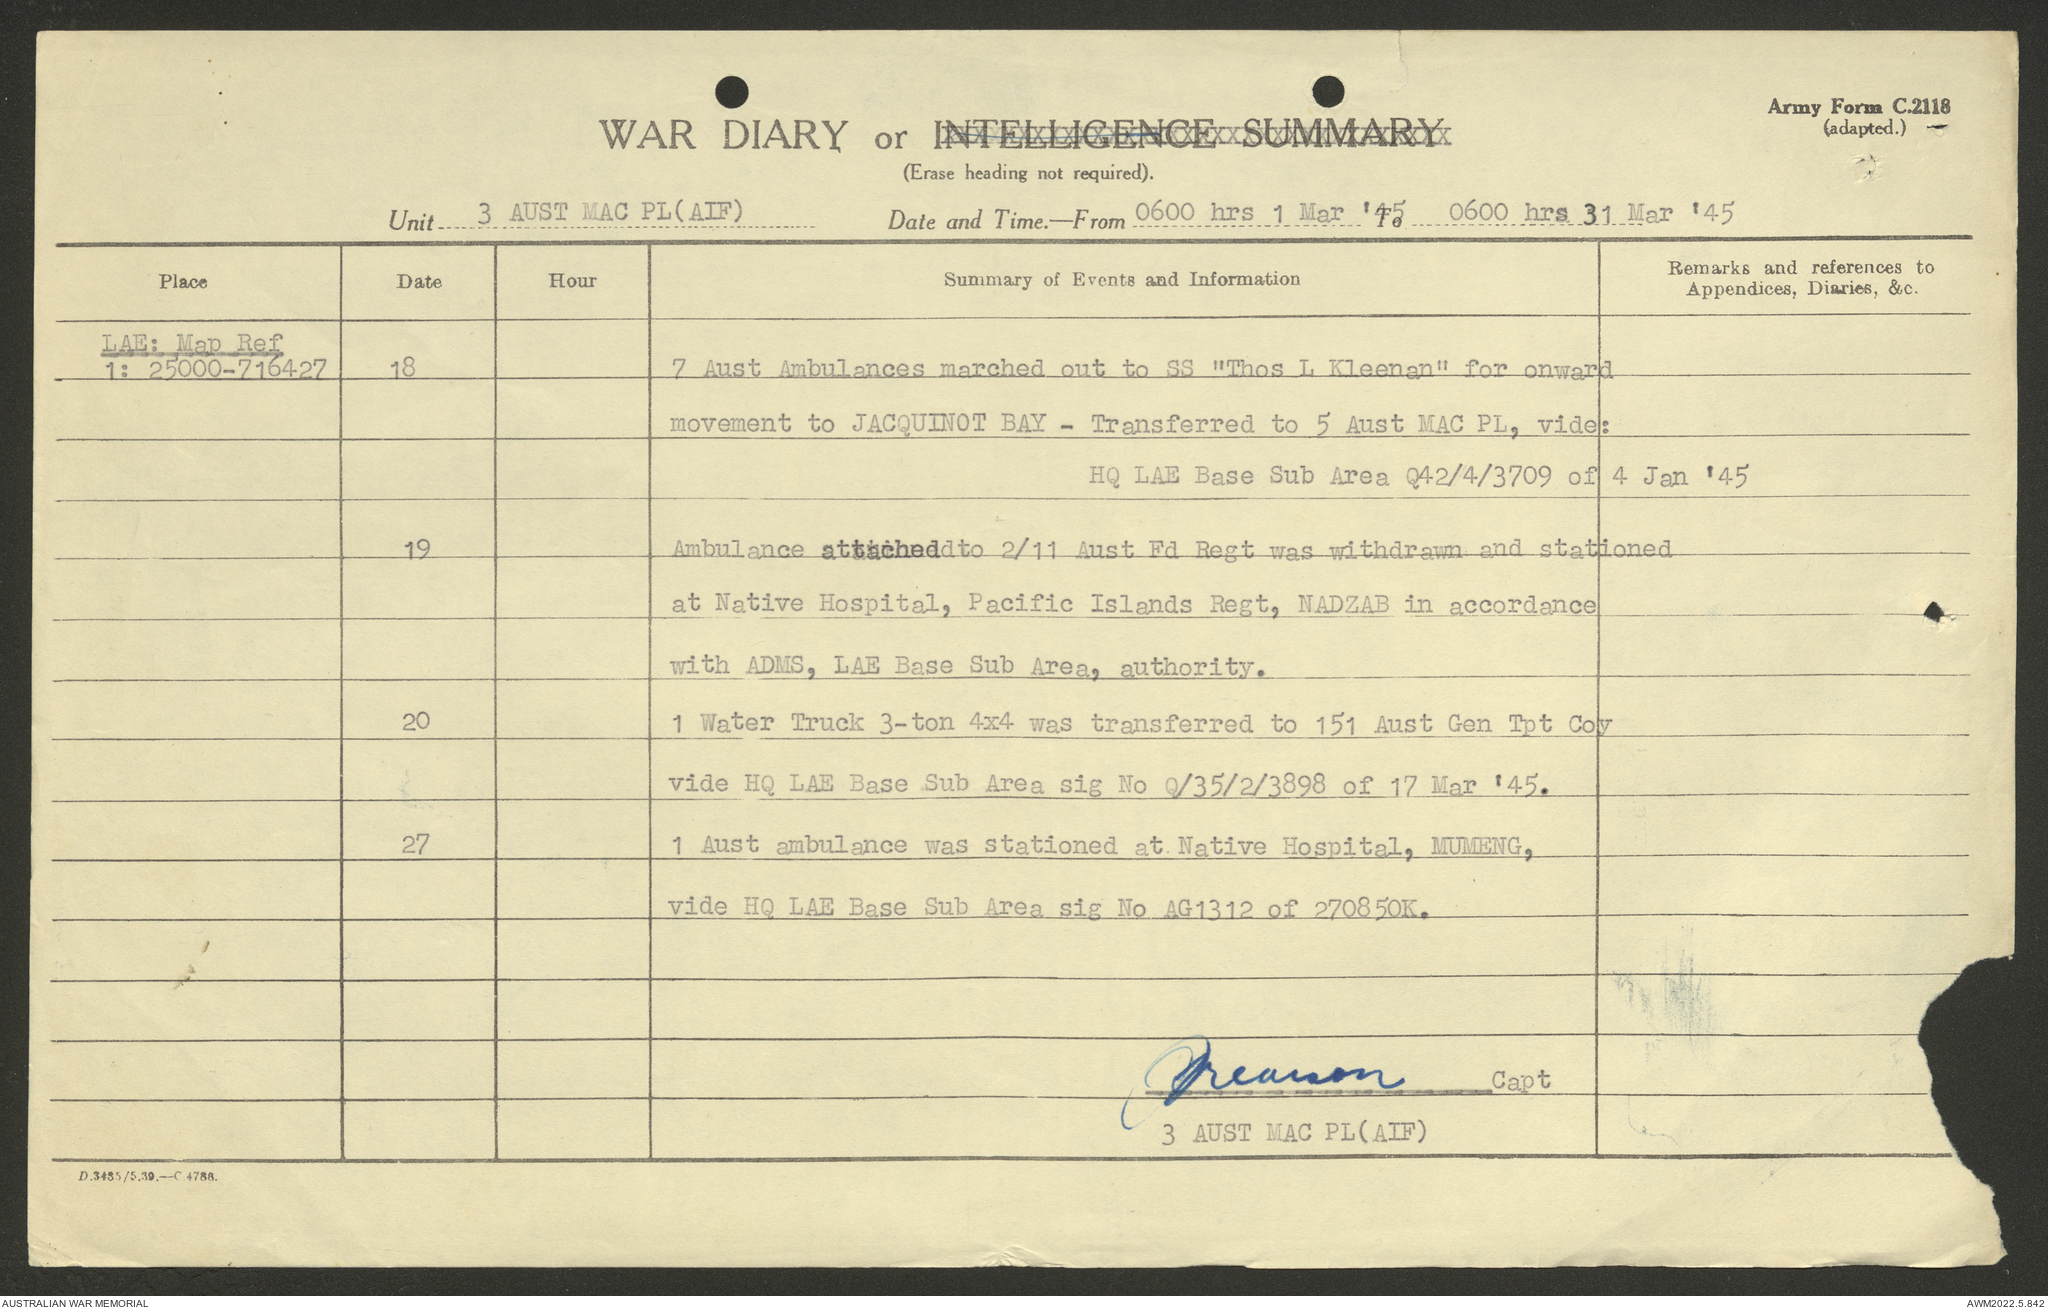 Army Form C.2118
(adapted.)
WAR DIARY or INTELLIGENCE SUMMARY
(Erase heading not required).
Unit 3 AUST MAC PL(AIF) Date and Time.—From 0600 hrs 1 Mar '45 To 0600 hrs 31 Mar '45
Place Date Hour Summary of Events and Information Remarks and references to
Appendices, Diaries, &c.
LAE: Map Ref
1: 25000-716427 18 7 Aust Ambulances marched out to SS "Thos L Kleenan" for onward
movement to JACQUINOT BAY - Transferred to 5 Aust MAC PL, vide:
HQ LAE Base Sub Area Q42/4/3709 of 4 Jan '45
19 Ambulance attached to 2/11 Aust Fd Regt was withdrawn and stationed
at Native Hospital, Pacific Islands Regt, NADZAB in accordance
with ADMS, LAE Base Sub Area, authority.
20 1 Water Truck 3-ton 4x4 was transferred to 151 Aust Gen Tpt Coy
vide HQ LAE Base Sub Area sig No Q/35/2/3898 of 17 Mar '45.
27 1 Aust ambulance was stationed at Native Hospital, MUMENG,
vide HQ LAE Base Sub Area sig No AG1312 of 270850K.
Capt
3 AUST MAC PL(AIF)
D.3485/5.39.—C 4788.
AUSTRALIAN WAR MEMORIAL AWM2022.5.842